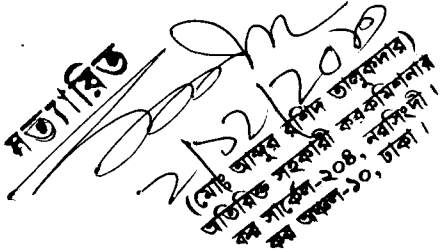 সত্যায়িত
২/১২/২০১০
(মোঃ আব্দুর রশিদ তালুকদার)
অতিরিক্ত সহকারী করকমিশনার
কর সার্কেল-২০৪, নরসিংদী।
কর অঞ্চল-১০, ঢাকা।